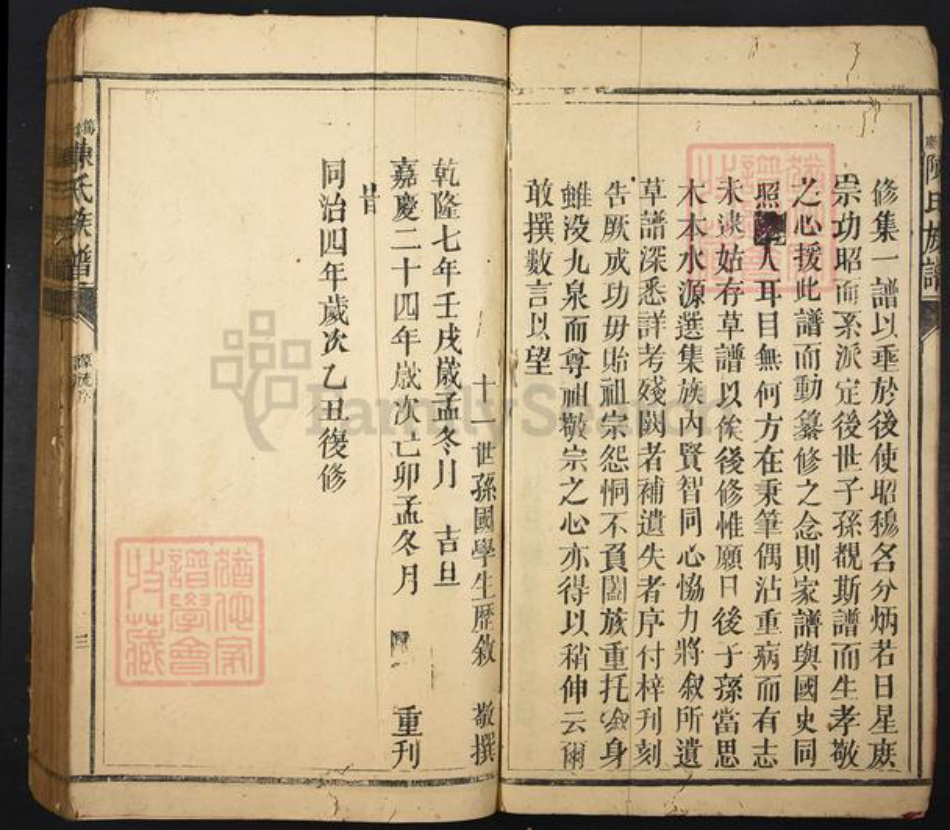 修集一譜以垂於後使昭穆各分炳若日星庶
宗功昭而系派定後世子孫覩斯譜而生孝敬
之心援此譜而動纂修之念則家譜與國史同
照人耳目無何方在秉筆偶沾重病而有志
未逮姑存草譜以俟後修惟願日後子孫當思
木本水源選集族內賢智同心恊力將叙所遺
草譜深悉詳考殘闕者補遺失者序付梓刊刻
告厥成功毋貽祖宗怨恫不負闔族重托叙身
雖没九泉而尊祖敬宗之心亦得以稍伸云爾
敢撰數言以望
十一世孫國學生歷敘 敬撰
乾隆七年壬戌歲孟冬月 吉旦
嘉慶二十四年歲次己卯孟冬月 重刊
旹
同治四年歲次乙丑復修
陳氏族譜
陳氏族譜
源流序
三
FamilySearch